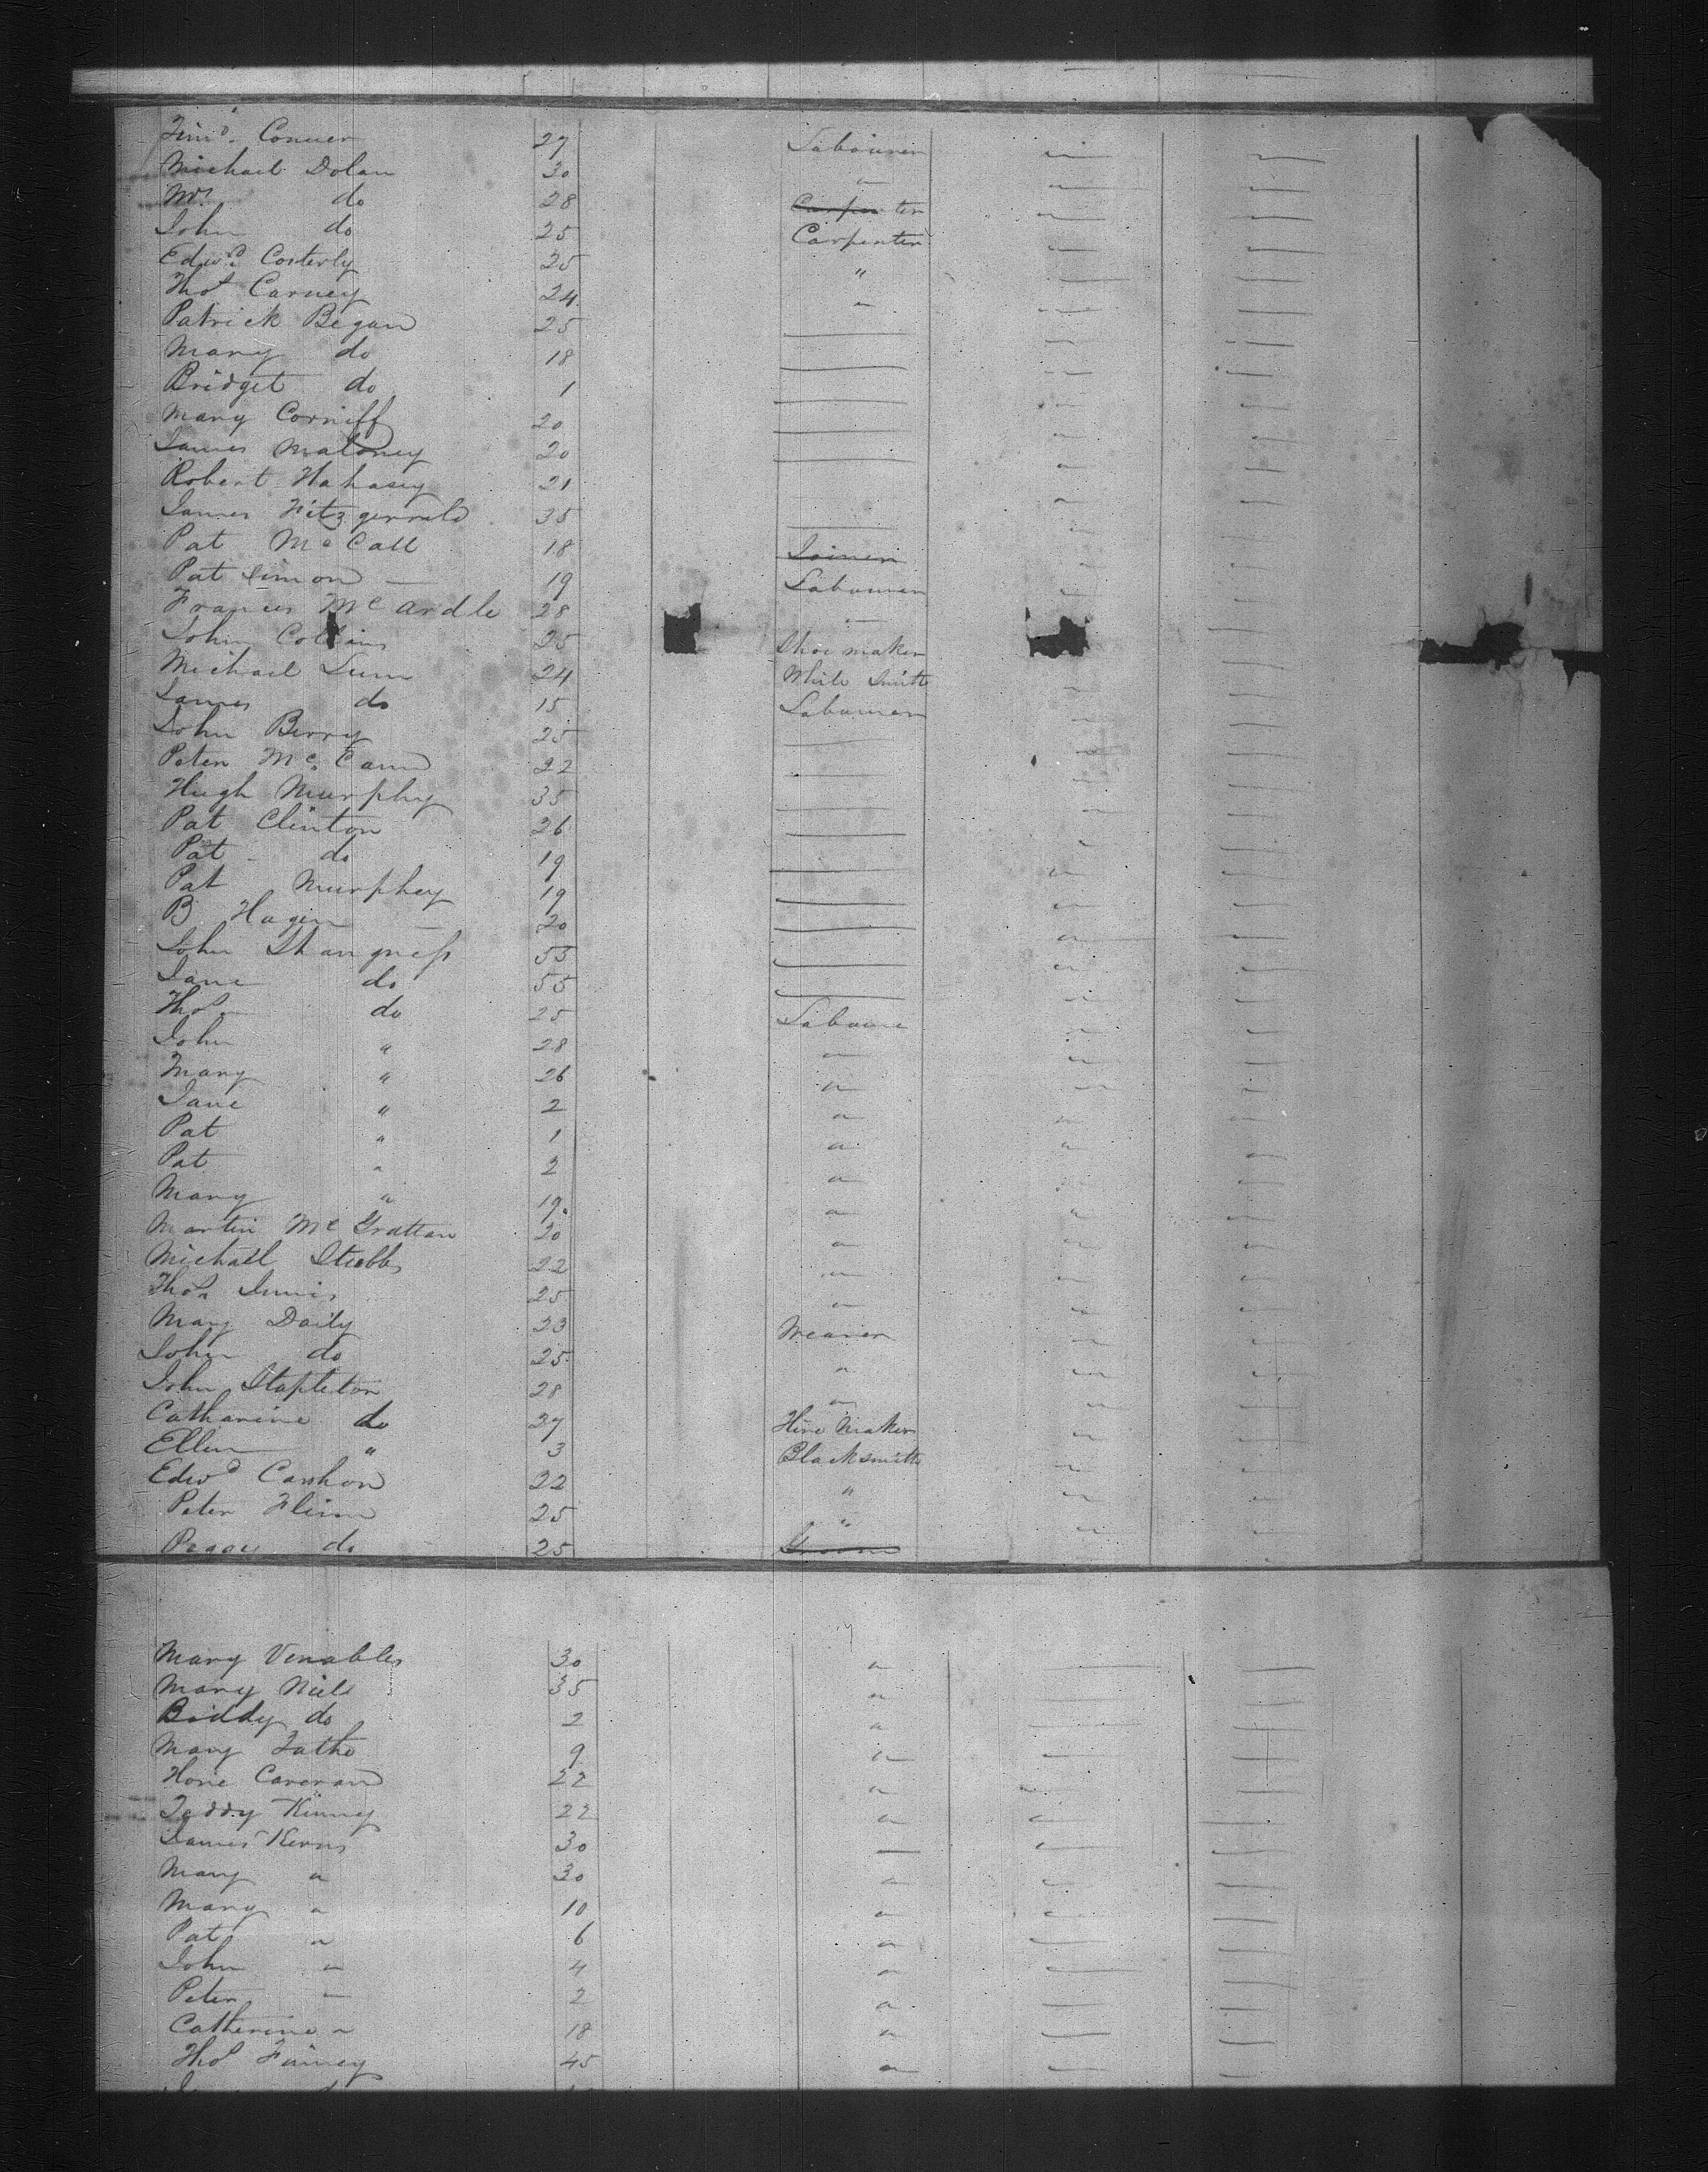 Tim.d Conner 27 Labourer " "
Michael Dolan 30 " " "
Wm do 28 Carpenter " "
John do 25 Carpenter " "
Edwd Costerly 25 " "
Thos Carney 24 " "
Patrick Began 25 "
Mary do 18 "
Bridget do 1 "
Mary Corniff 20 "
James Maloney 20 "
Robert Hahasey 21 "
James Fitzgerrald 35 "
Pat McCall 18 Joiner "
Pat Simon 19 Labourer "
Frances McArdle 28 "
John Collins 25 Shoe maker
Michael Lunn 24 White Smith "
James do 15 Labourer "
John Berry 25 "
Peter McCann 22 "
Hugh Murphy 35 "
Pat Clinton 26 "
Pat do 19 "
Pat Murphey 19 "
B Hagin 20 "
John Shangness 55 "
Jane do 55 "
Thos do 25 Laboure "
John " 28 " "
Mary " 26 " "
Jane " 2 " "
Pat " 1 " "
Pat " 2 " "
Mary " 19 " "
Martin McGrattan 20 " "
Michael Stubbs 22 " "
Thos 25 " "
Mary Daily 23 Weaver "
John do 25 " "
John Stapleton 28 " "
Catharine do 27 Hive Maker "
Ellen " 3 Blacksmith "
Edwd Cashon 22 " "
Peter Flinn 25 " "
Peggy do 25 Groom
Mary Venables 30 "
Mary Niele 35 "
Biddy do 2 "
Mary 9 "
Caveran 22 " "
Teddy Kinney 22 " "
James Kerns 30
Mary " 30 " "
Mary " 10 " "
Pat " 6 "
John " 4 "
Peter " 2 "
Catherine " 18 "
Thos Finney 45 "